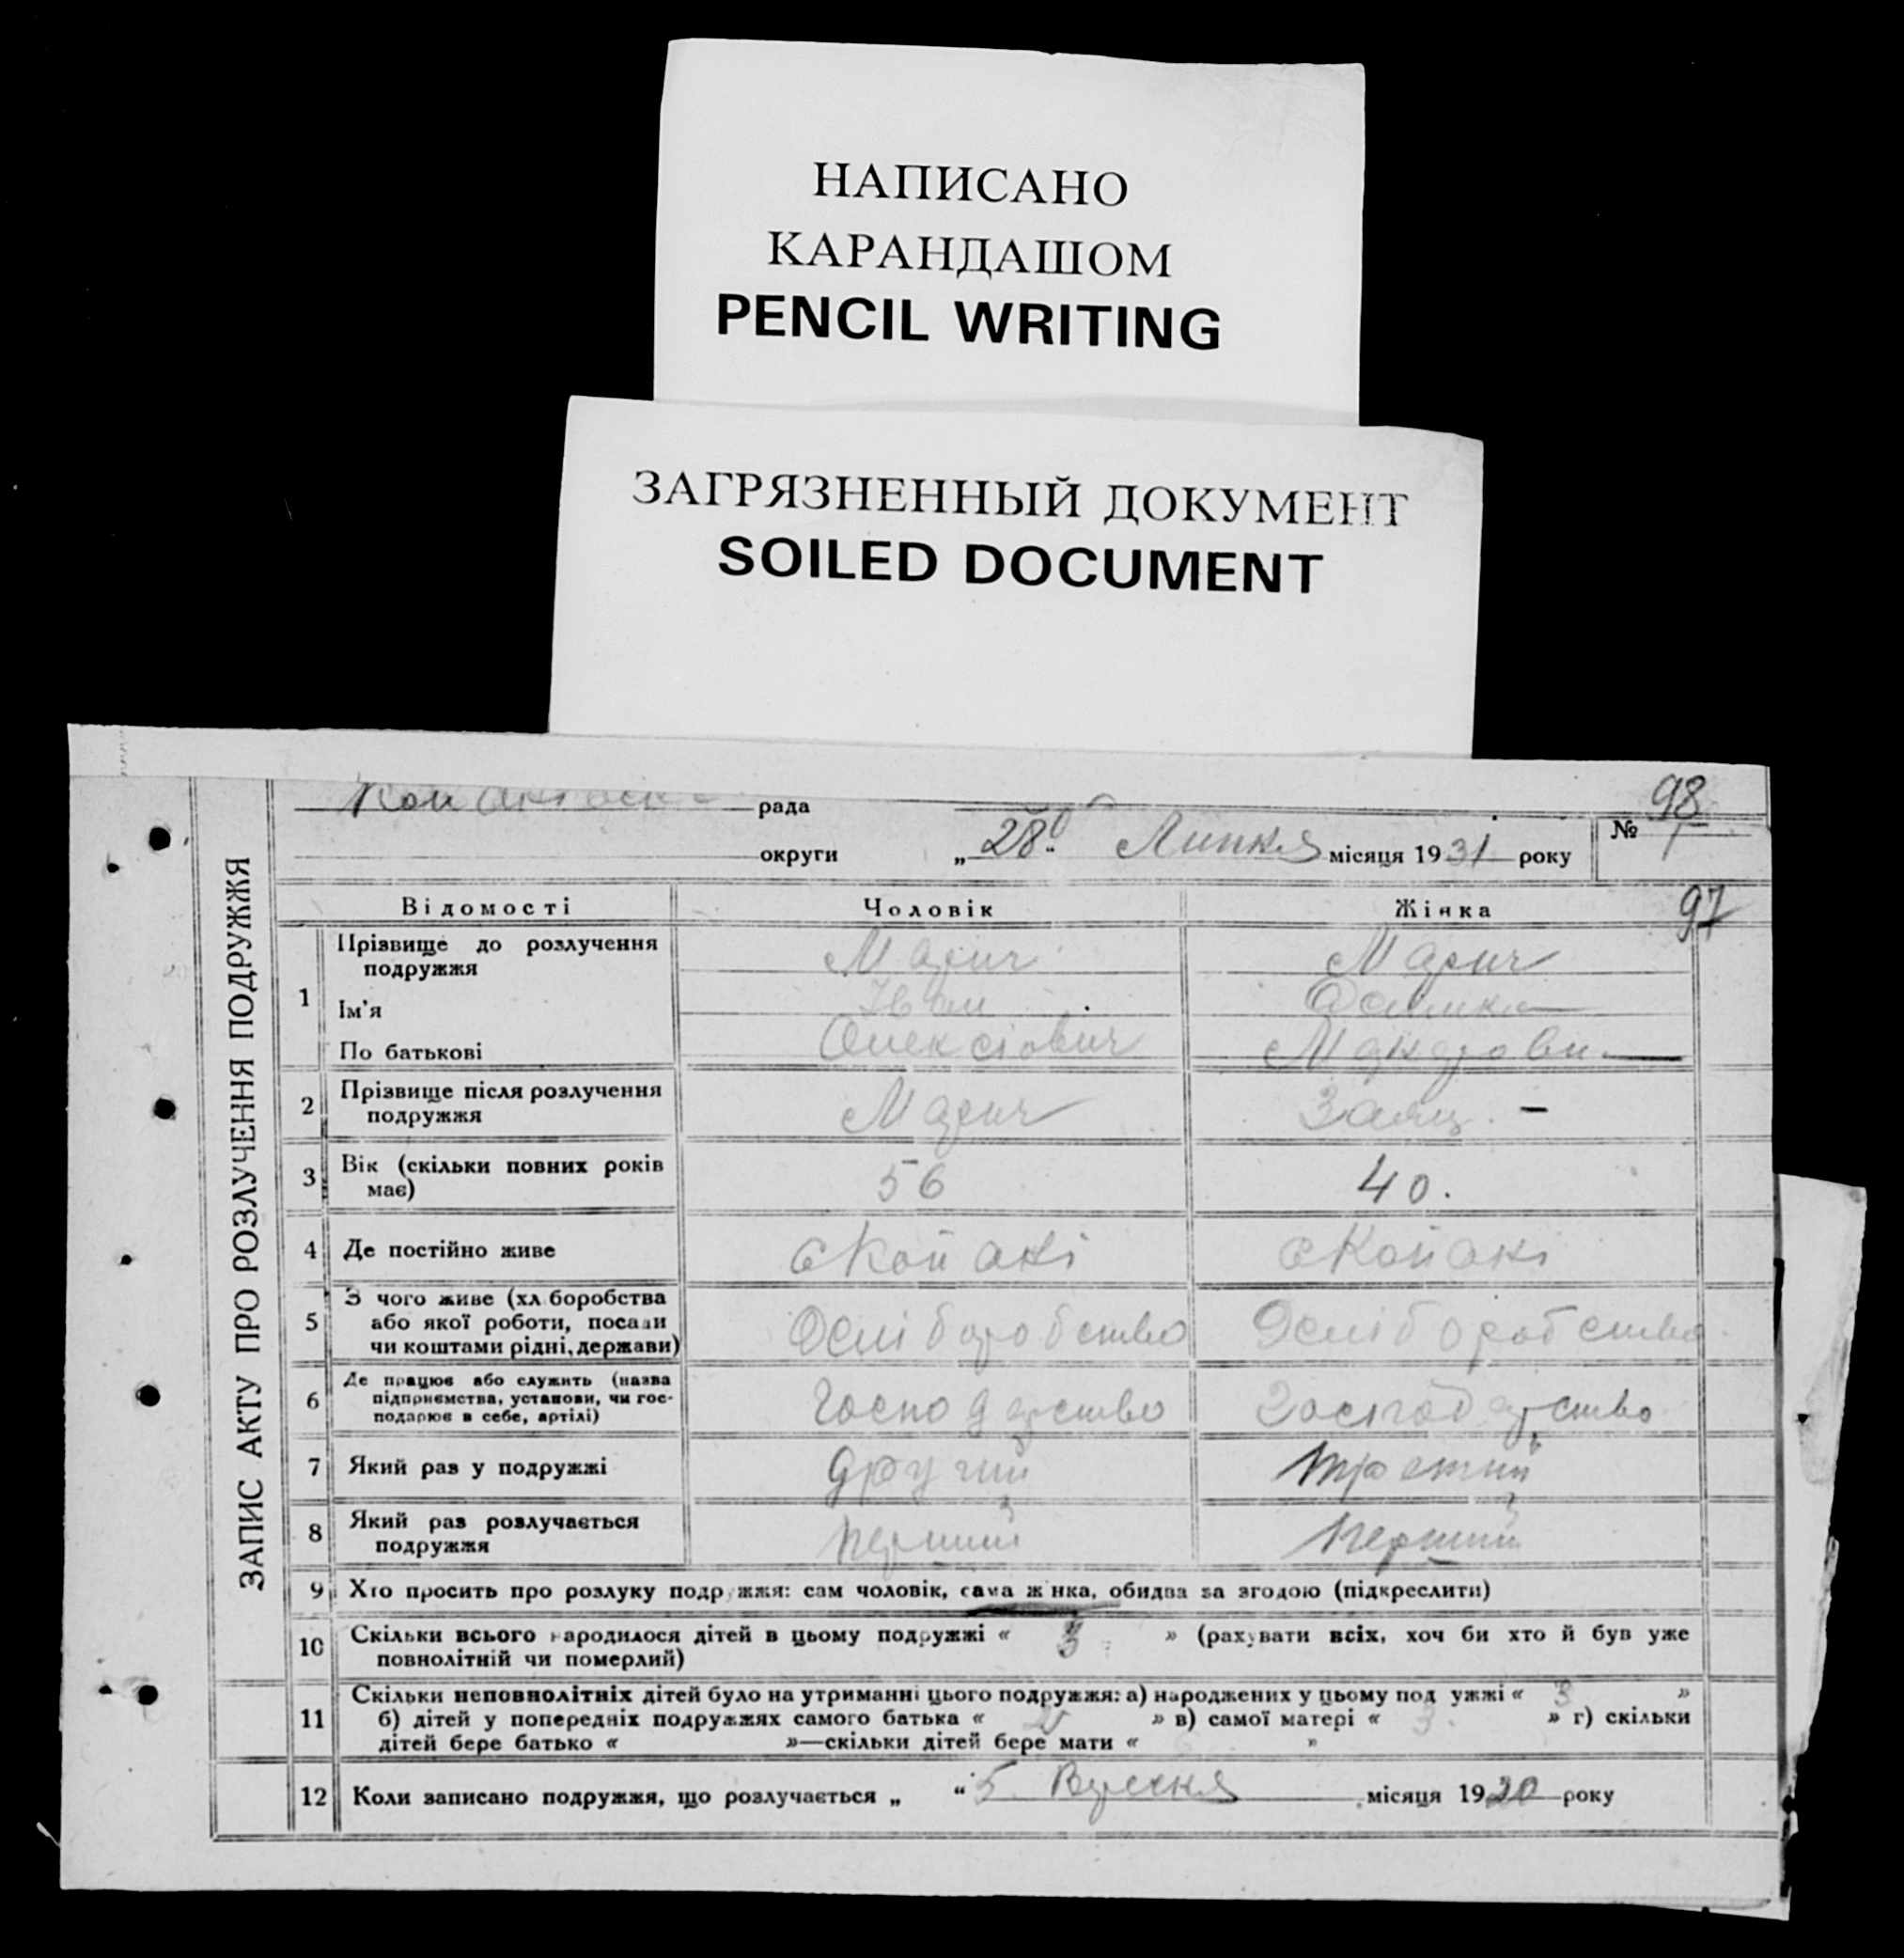 НАПИСАНО
КАРАНДАШОМ
PENCIL WRITING
ЗАГРЯЗНЕННЫЙ ДОКУМЕНТ
SOILED DOCUMENT
98
рада
№ 1
округи „28“ Липня місяця 1931 року
ЗАПИС АКТУ ПРО РОЗЛУЧЕННЯ ПОДРУЖЖЯ
Відомості Чоловік Жінка 97
1 Прізвище до розлучення
подружжя
Ім'я Іван
По батькові Олексіович
2 Прізвище після розлучення
подружжя Заяц. –
3 Вік (скільки повних років
має) 56 40.
4 Де постійно живе с Копані с Копані
5 З чого живе (хліборобства
або якої роботи, посади
чи коштами рідні, держави)
6 Де працює або служить (назва
підприємства, установи, чи гос-
подарює в себе, артілі)
7 Який раз у подружжі другий третий
8 Який раз розлучається
подружжя перший перший
9 Хто просить про розлуку подружжя: сам чоловік, сама жінка, обидва за згодою (підкреслити)
10 Скільки всього народилося дітей в цьому подружжі « 3 » (рахувати всіх, хоч би хто й був уже
повнолітній чи померлий)
11 Скільки неповнолітніх дітей було на утриманні цього подружжя: а) народжених у цьому подружжі « 3 »
б) дітей у попередніх подружжях самого батька « » в) самої матері « 3. » г) скільки
дітей бере батько « »—скільки дітей бере мати « »
12 Коли записано подружжя, що розлучається „ “ 5 місяця 1920 року